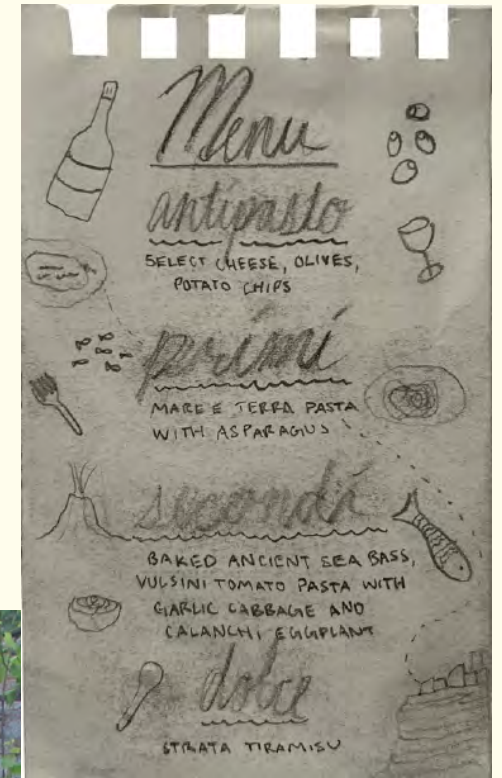 Menu
antipasto
SELECT CHEESE, OLIVES,
POTATO CHIPS
primi
MARE E TERRA PASTA
WITH ASPARAGUS
secondi
BAKED ANCIENT SEA BASS,
VULSINI TOMATO PASTA WITH
GARLIC CABBAGE AND
CALANCHI EGGPLANT
dolce
STRATA TIRAMISU